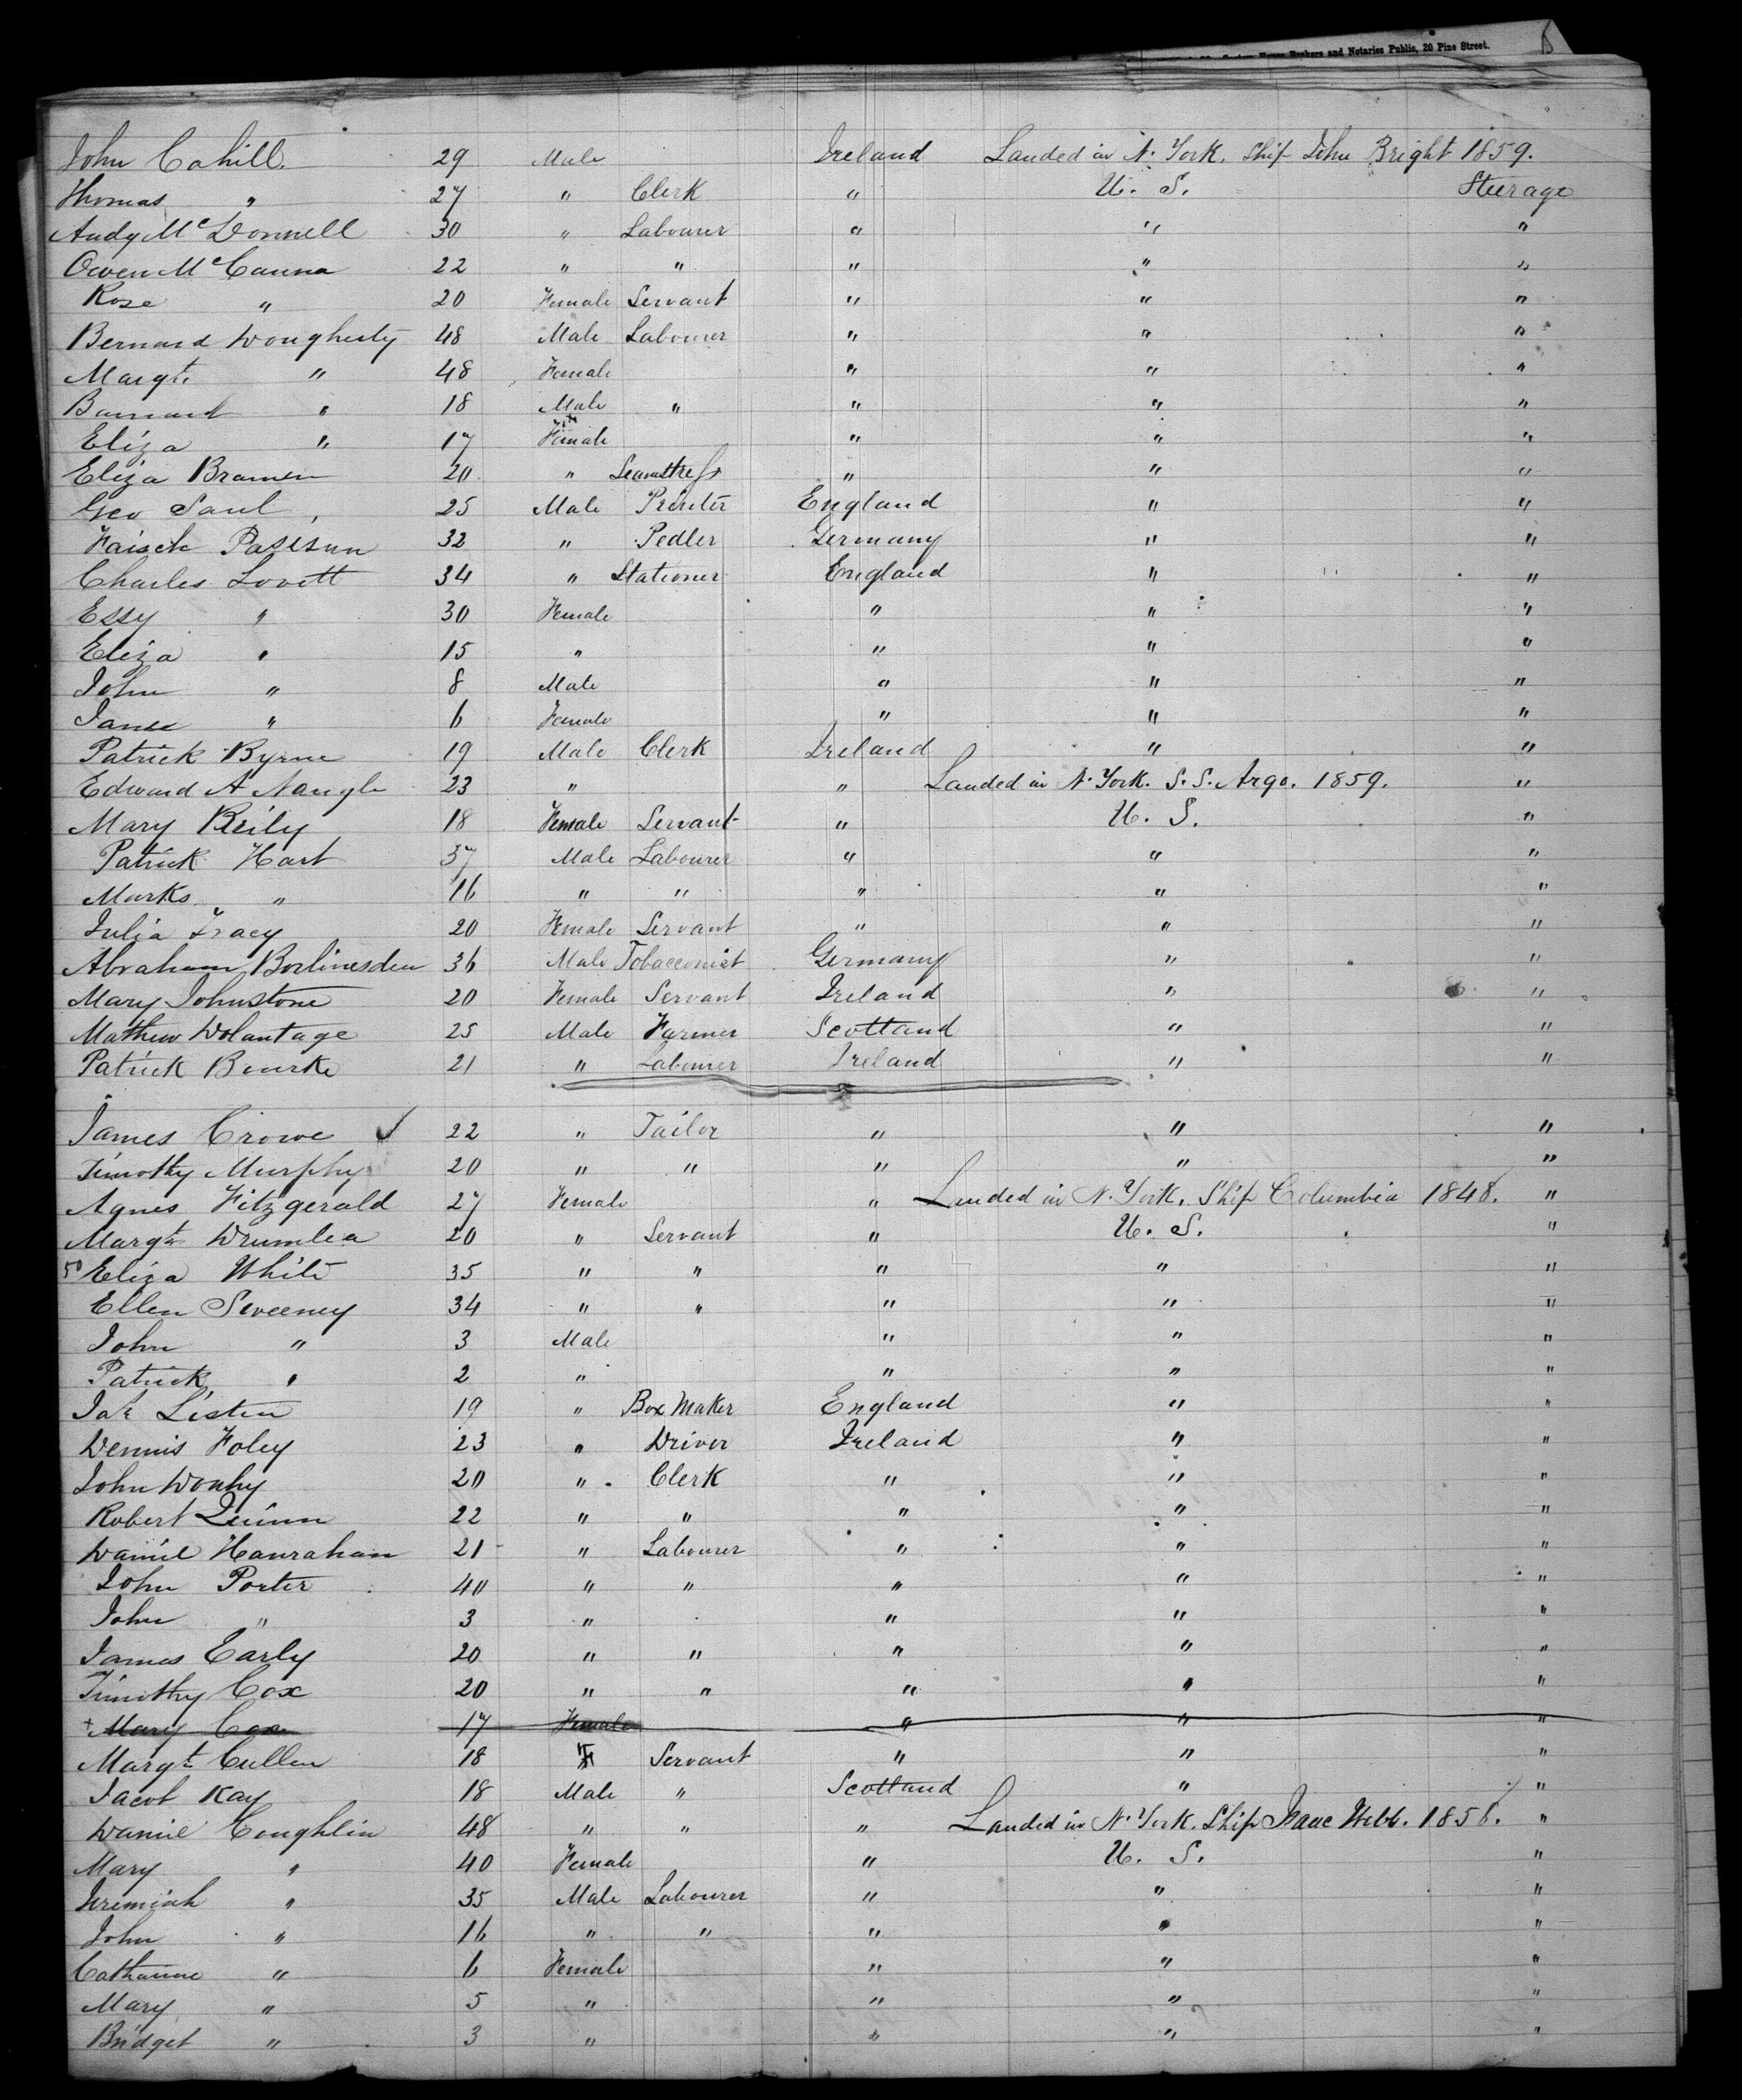 House Brokers and Notaries Public, 20 Pine Street.
John Cahill. 29 Male Ireland Landed in N. York. Ship John Bright 1859.
Thomas " 27 " Clerk " U. S. Steerage
Andy McDonnell 30 " Labourer " " "
Owen McCanna 22 " " " " "
Rose " 20 Female Servant " " "
Bernard Dougherty 48 Male Labourer " " "
Margt. " 48 Female " " "
Barnard " 18 Male " " " "
Eliza " 17 Female " " "
Eliza Bramen 20 " Seamstress " " "
Geo Saul 25 Male Printer England " "
32 " Pedler Germany " "
Charles Lovett 34 " Stationer England " "
Essy " 30 Female " " "
Eliza " 15 " " " "
John " 8 Male " " "
Janee " 6 Female " " "
Patrick Byrne 19 Male Clerk Ireland " "
Edward A Nangle 23 " " Landed in N. York. S. S. Argo. 1859. "
Mary Reily 18 Female Servant " U. S. "
Patrick Hart 37 Male Labourer " " "
Marks " 16 " " " " "
Julia Tracy 20 Female Servant " " "
Abraham 36 Male Tobacconist Germany " "
Mary Johnstone 20 Female Servant Ireland " "
Mathew Dolantage 25 Male Farmer Scotland " "
Patrick Bourke 21 " Labourer Ireland " "
James Crowe ✓ 22 " Tailor " " "
Timothy Murphy 20 " " " " "
Agnes Fitzgerald 27 Female " Landed in N. York. Ship Columbia 1848. "
Margt Drumlea 20 " Servant " U. S. "
50 Eliza White 35 " " " " "
Ellen Sweeney 34 " " " " "
John " 3 Male " " "
Patrick " 2 " " " "
Jas Listen 19 " Box Maker England " "
Dennis Foley 23 " Driver Ireland " "
John 20 " Clerk " " "
Robert Quinn 22 " " " " "
Daniel Hanrahan 21 " Labourer " " "
John Porter 40 " " " " "
John " 3 " " " "
James Early 20 " " " " "
Timothy Cox 20 " " " " "
+ Mary Cox 17 Female " " "
Margt Cullen 18 F Servant " " "
Jacob Kay 18 Male " Scotland " "
Daniel Coughlin 48 " " " Landed in N. York. Ship Isaac Webb. 1858. "
Mary " 40 Female " U. S. "
Jeremiah " 35 Male Labourer " " "
John " 16 " " " " "
Catharine " 6 Female " " "
Mary " 5 " " " "
Bridget " 3 " " " "